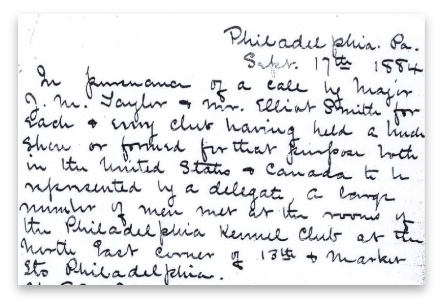 Philadelphia. Pa.
Sept. 17th 1884
In pursuance of a call by Major
J. M. Taylor & Mr. Elliot Smith for
Each & every club having held a bench
Show or formed for that purpose both
in the United States & Canada to be
represented by a delegate, a large
number of men met at the rooms of
the Philadelphia Kennel Club at the
North East corner of 13th & Market
Sts Philadelphia.